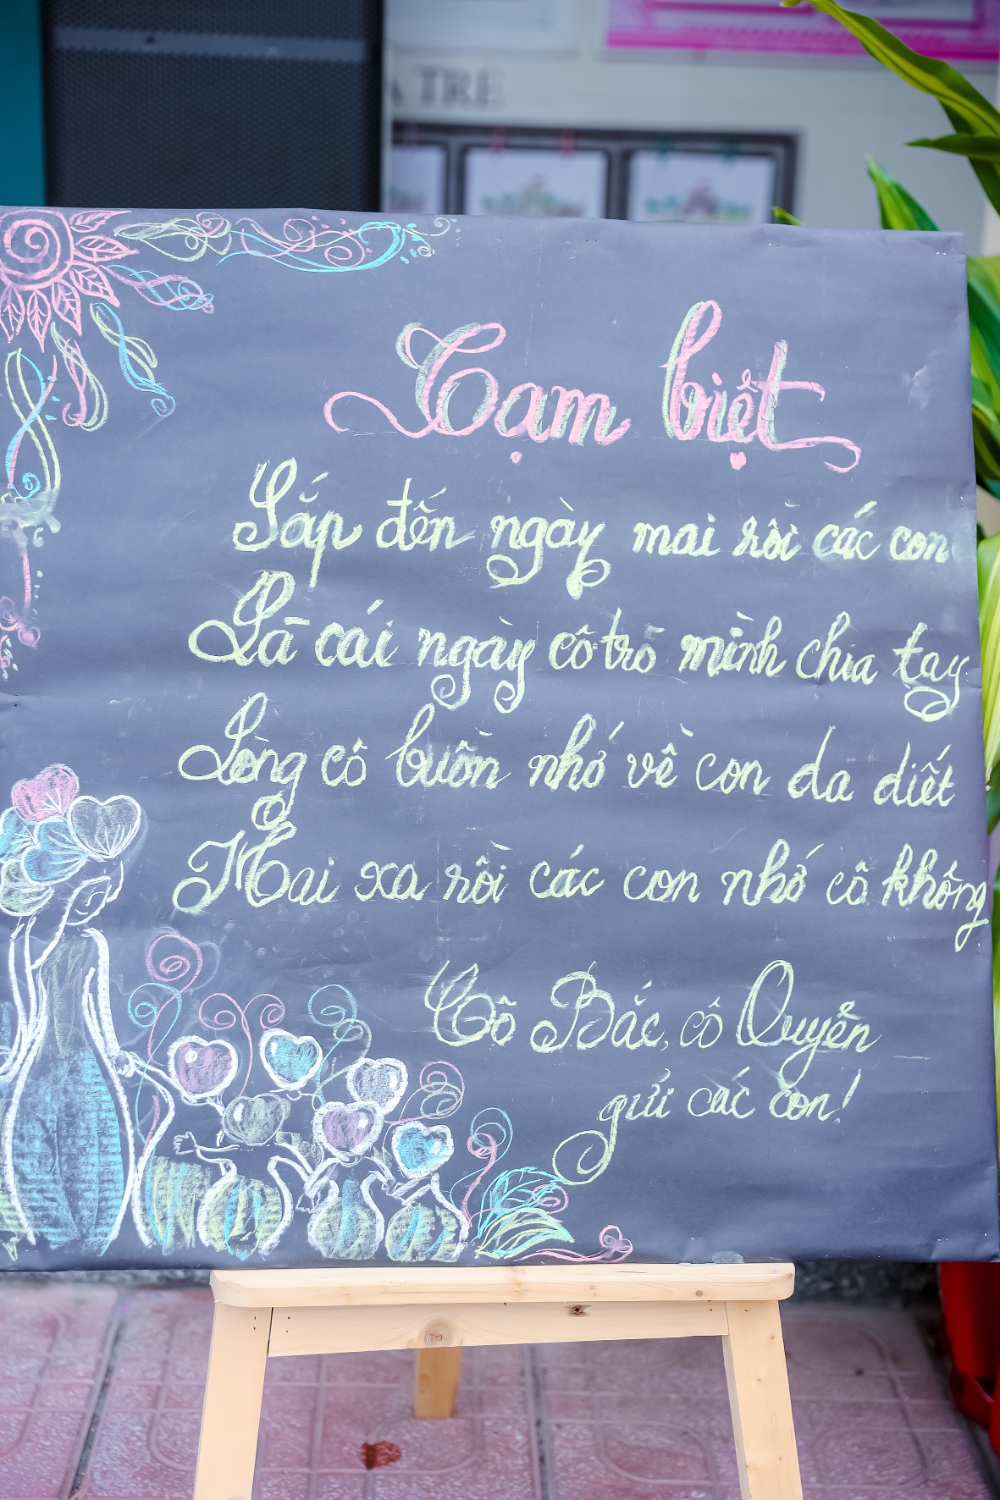 A TRE
Tạm biệt
Sắp đến ngày mai rồi các con
Là cái ngày cô trò mình chia tay
Lòng cô buồn nhớ về con da diết
Mai xa rồi các con nhớ cô không
Cô Bắc, cô Quyên
gửi các con!